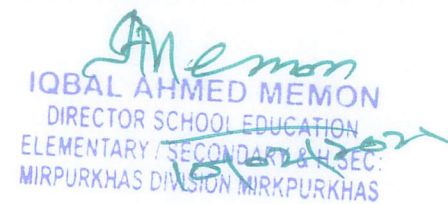 Memon
IQBAL AHMED MEMON
DIRECTOR SCHOOL EDUCATION
ELEMENTARY / SECONDARY & H.SEC:
MIRPURKHAS DIVISION MIRKPURKHAS